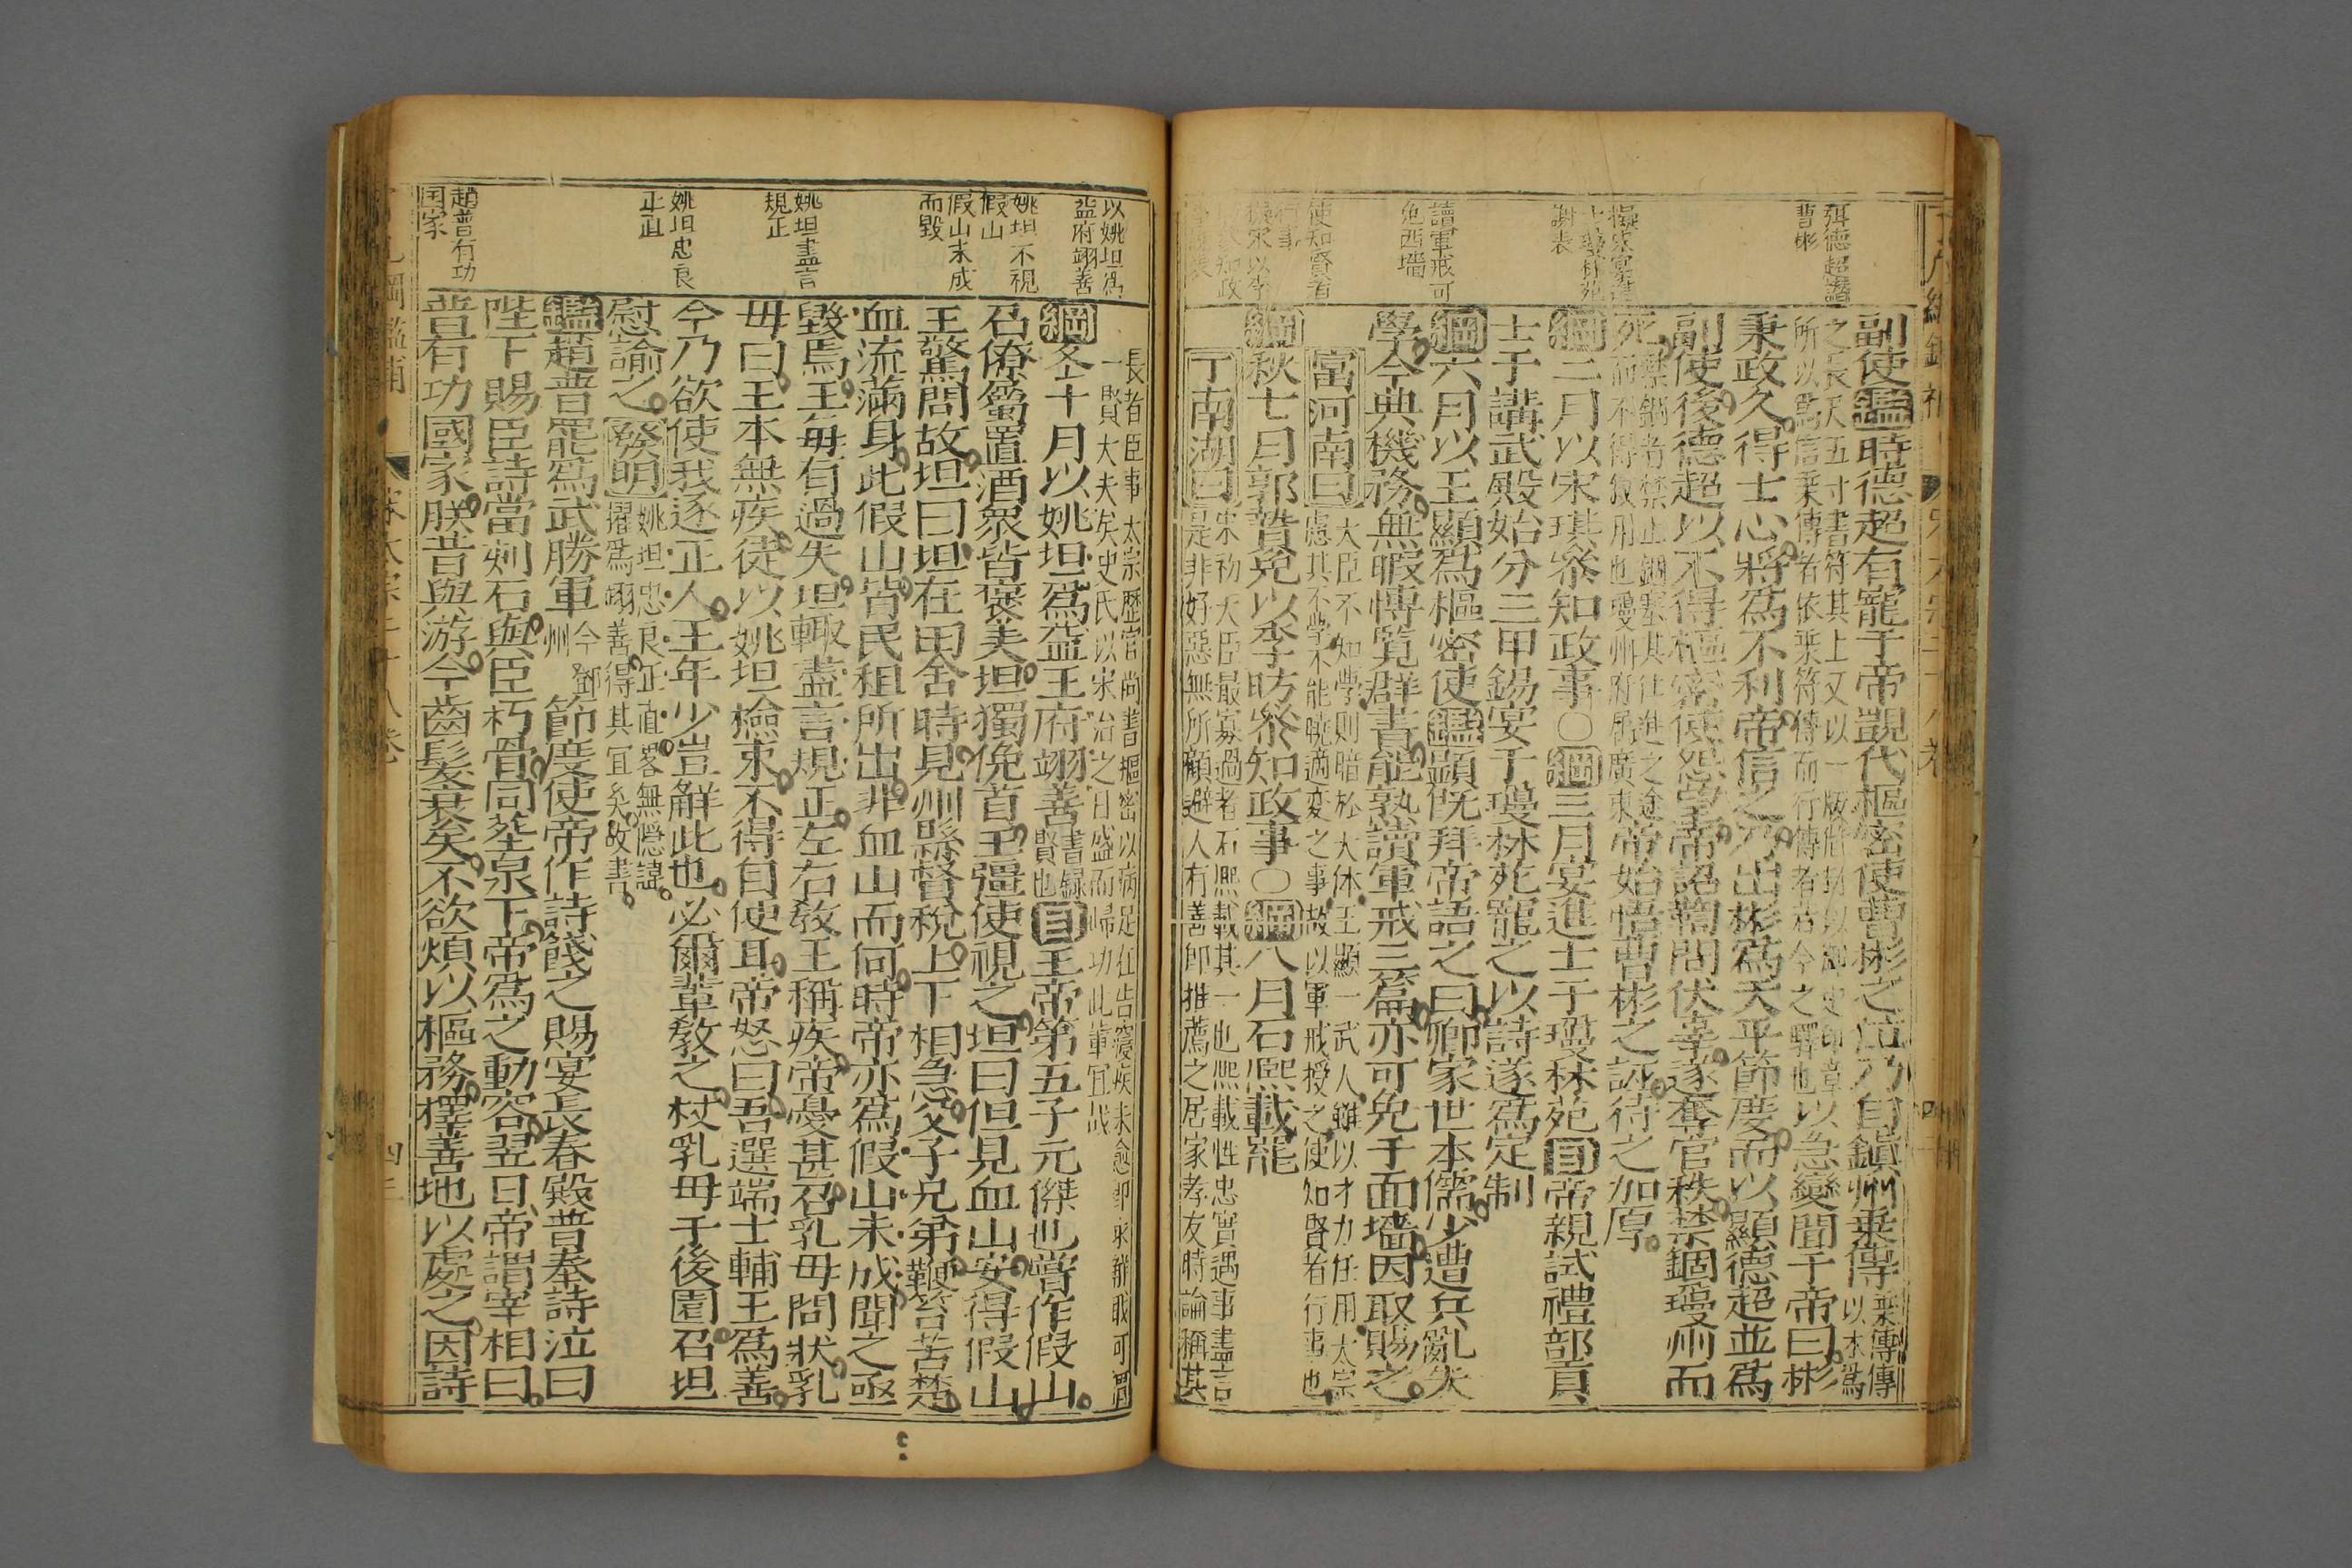 弭德超譖
曹彬
謝表
讀軍戒可
免西墻
使知賢者
行事
副使鑑時德超有寵于帝覬代樞密使曹彬之位乃自鎮州乘傳乘傳傳
以木爲
之長尺五寸書符其上又以一版
所以爲信乘傳者依乘符傳而行傳者若今之驛也以急變聞于帝曰彬
秉政久得士心將爲不利帝信之乃出彬爲天平節度而以顯德超並爲
副使後德超以不得樞密使怨望帝詔鞫問伏辜遂奪官秩禁錮瓊州而
死禁錮者禁止錮塞其仕進之途
死而不得叙用也瓊州府屬廣東帝始悟曹彬之誣待之加厚
綱二月以宋琪叅知政事○綱三月宴進士于瓊林苑目帝親試禮部貢
士于講武殿始分三甲錫宴于瓊林苑寵之以詩遂爲定制
綱六月以王顯爲樞密使鑑顯旣拜帝語之曰卿家世本儒少遭兵亂失
學今典機務無暇愽覧群書能熟讀軍戒三篇亦可免于面墻因取賜之
富河南曰大臣不知學則暗於大体王顯一武人雖以才力任用太宗
慮其不學不能曉適变之事故以軍戒授之使知賢者行事也
綱秋七月郭贄免以李昉叅知政事○綱八月石熙載罷
丁南湖曰宋初大臣最寡過者石熙載其一也熙載性忠實遇事盡言
是非好惡無所顧避人有善即推薦之居家孝友時論稱其
以姚坦爲
益府翊善
姚坦不視
假山
假山未成
而毀
姚坦盡言
規正
姚坦忠良
正直
趙普有功
国家
長者臣事太宗歷官尚書樞密以病足在告寢疾未愈即求離職可謂
一賢大夫矣史氏以宋治之日盛而歸功此軰宜哉
綱冬十月以姚坦爲益王府翊善書録
賢也目王帝第五子元傑也嘗作假山
召僚屬置酒衆皆褒美坦獨俛首王彊使視之坦曰但見血山安得假山
王驚問故坦曰坦在田舍時見州縣督稅上下相急父子兄弟鞭笞苦楚
血流滿身此假山皆民租所出非血山而何時帝亦爲假山未成聞之亟
毀焉王毎有過失坦輙盡言規正左右教王稱疾帝憂甚召乳毋問狀乳
毋曰王本無疾徒以姚坦檢束不得自使耳帝怒曰吾選端士輔王爲善
今乃欲使我逐正人王年少豈解此也必爾軰教之杖乳毋于後園召坦
慰諭之發明姚坦忠良正直畧無隱諱
擢爲翊善得其宜矣故書
鑑趙普罷爲武勝軍今鄧
州節度使帝作詩餞之賜宴長春殿普奉詩泣曰
陛下賜臣詩當刻石與臣朽骨同葬泉下帝爲之動容翌日帝謂宰相曰
普有功國家朕昔與游今齒髮衰矣不欲煩以樞務擇善地以處之因詩